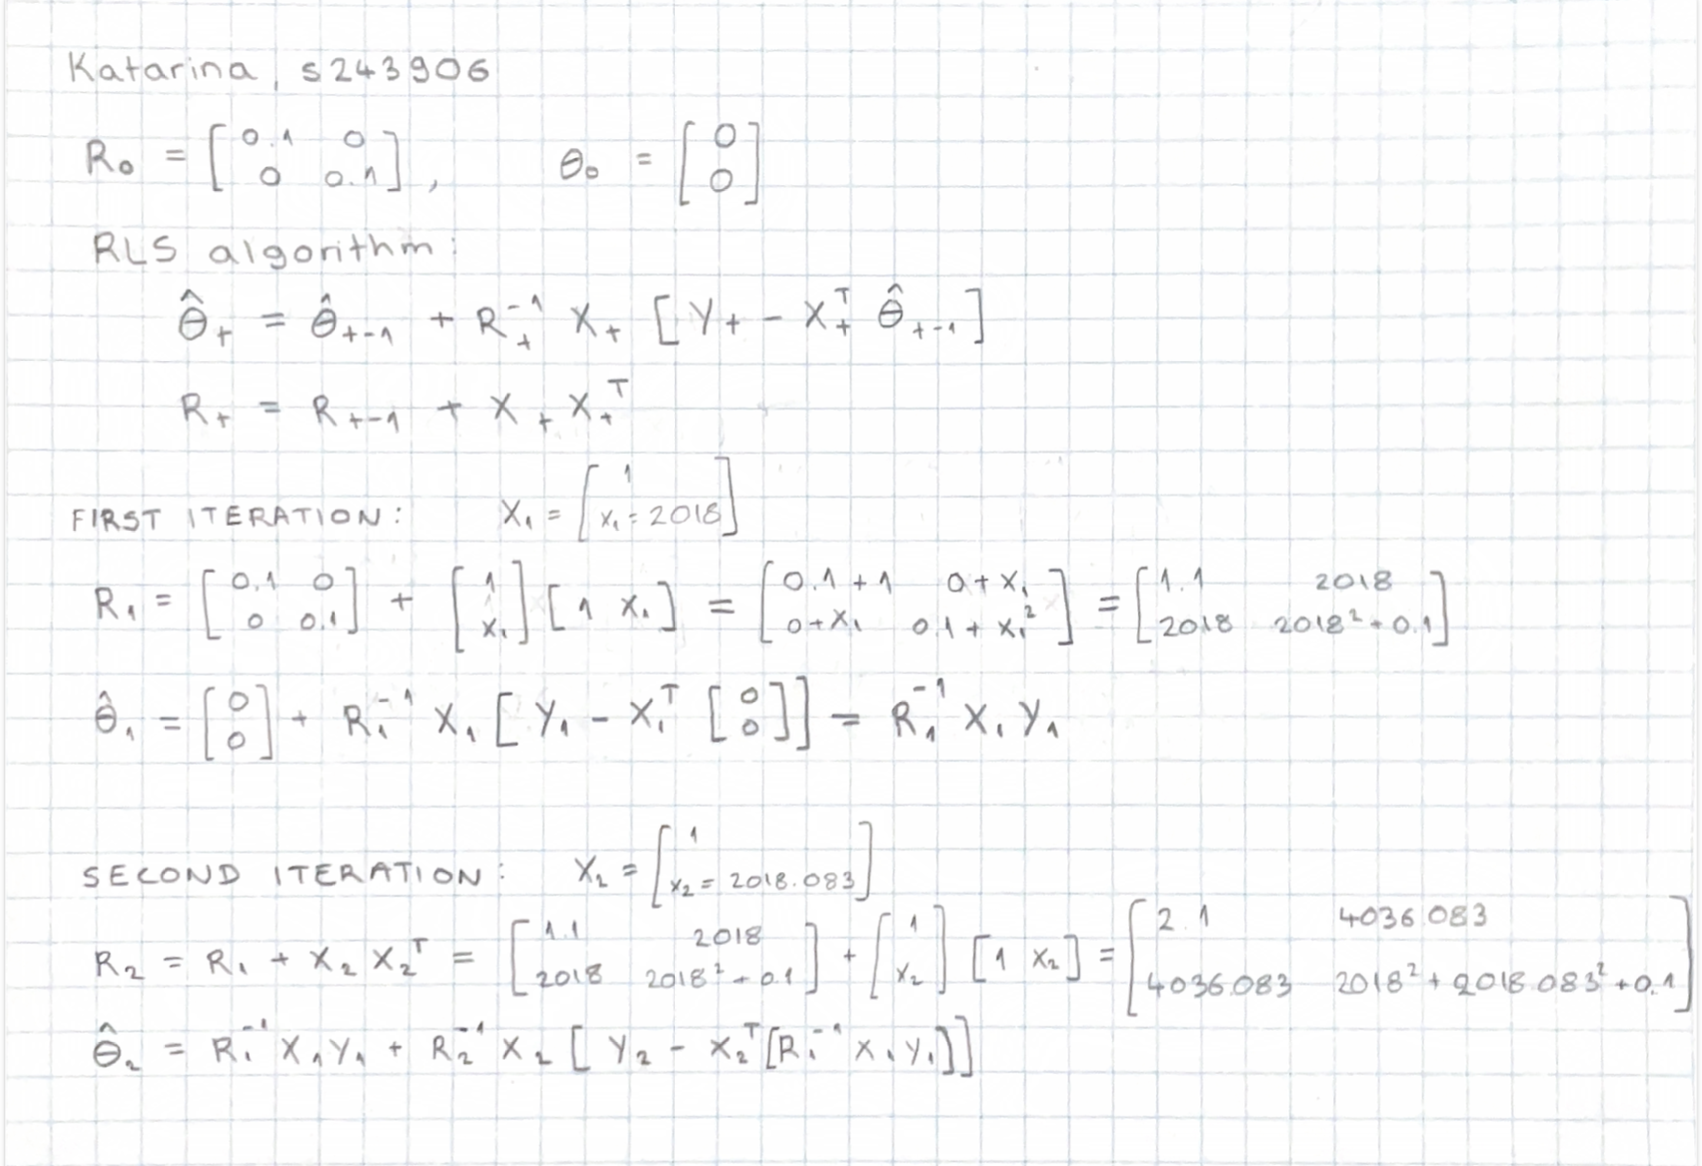 Katarina, s243906
R₀ = [0.1 0; 0 0.1], θ₀ = [0; 0]
RLS algorithm:
θ̂ₜ = θ̂ₜ₋₁ + Rₜ⁻¹ Xₜ [Yₜ − Xₜᵀ θ̂ₜ₋₁]
Rₜ = Rₜ₋₁ + Xₜ Xₜᵀ
FIRST ITERATION: X₁ = [1; x₁ = 2018]
R₁ = [0.1 0; 0 0.1] + [1; x₁] [1 x₁] = [0.1+1 0+x₁; 0+x₁ 0.1+x₁²] = [1.1 2018; 2018 2018²+0.1]
θ̂₁ = [0; 0] + R₁⁻¹ X₁ [Y₁ − X₁ᵀ [0; 0]] = R₁⁻¹ X₁ Y₁
SECOND ITERATION: X₂ = [1; x₂ = 2018.083]
R₂ = R₁ + X₂ X₂ᵀ = [1.1 2018; 2018 2018²+0.1] + [1; x₂] [1 x₂] = [2.1 4036.083; 4036.083 2018²+2018.083²+0.1]
θ̂₂ = R₁⁻¹ X₁ Y₁ + R₂⁻¹ X₂ [Y₂ − X₂ᵀ [R₁⁻¹ X₁ Y₁]]